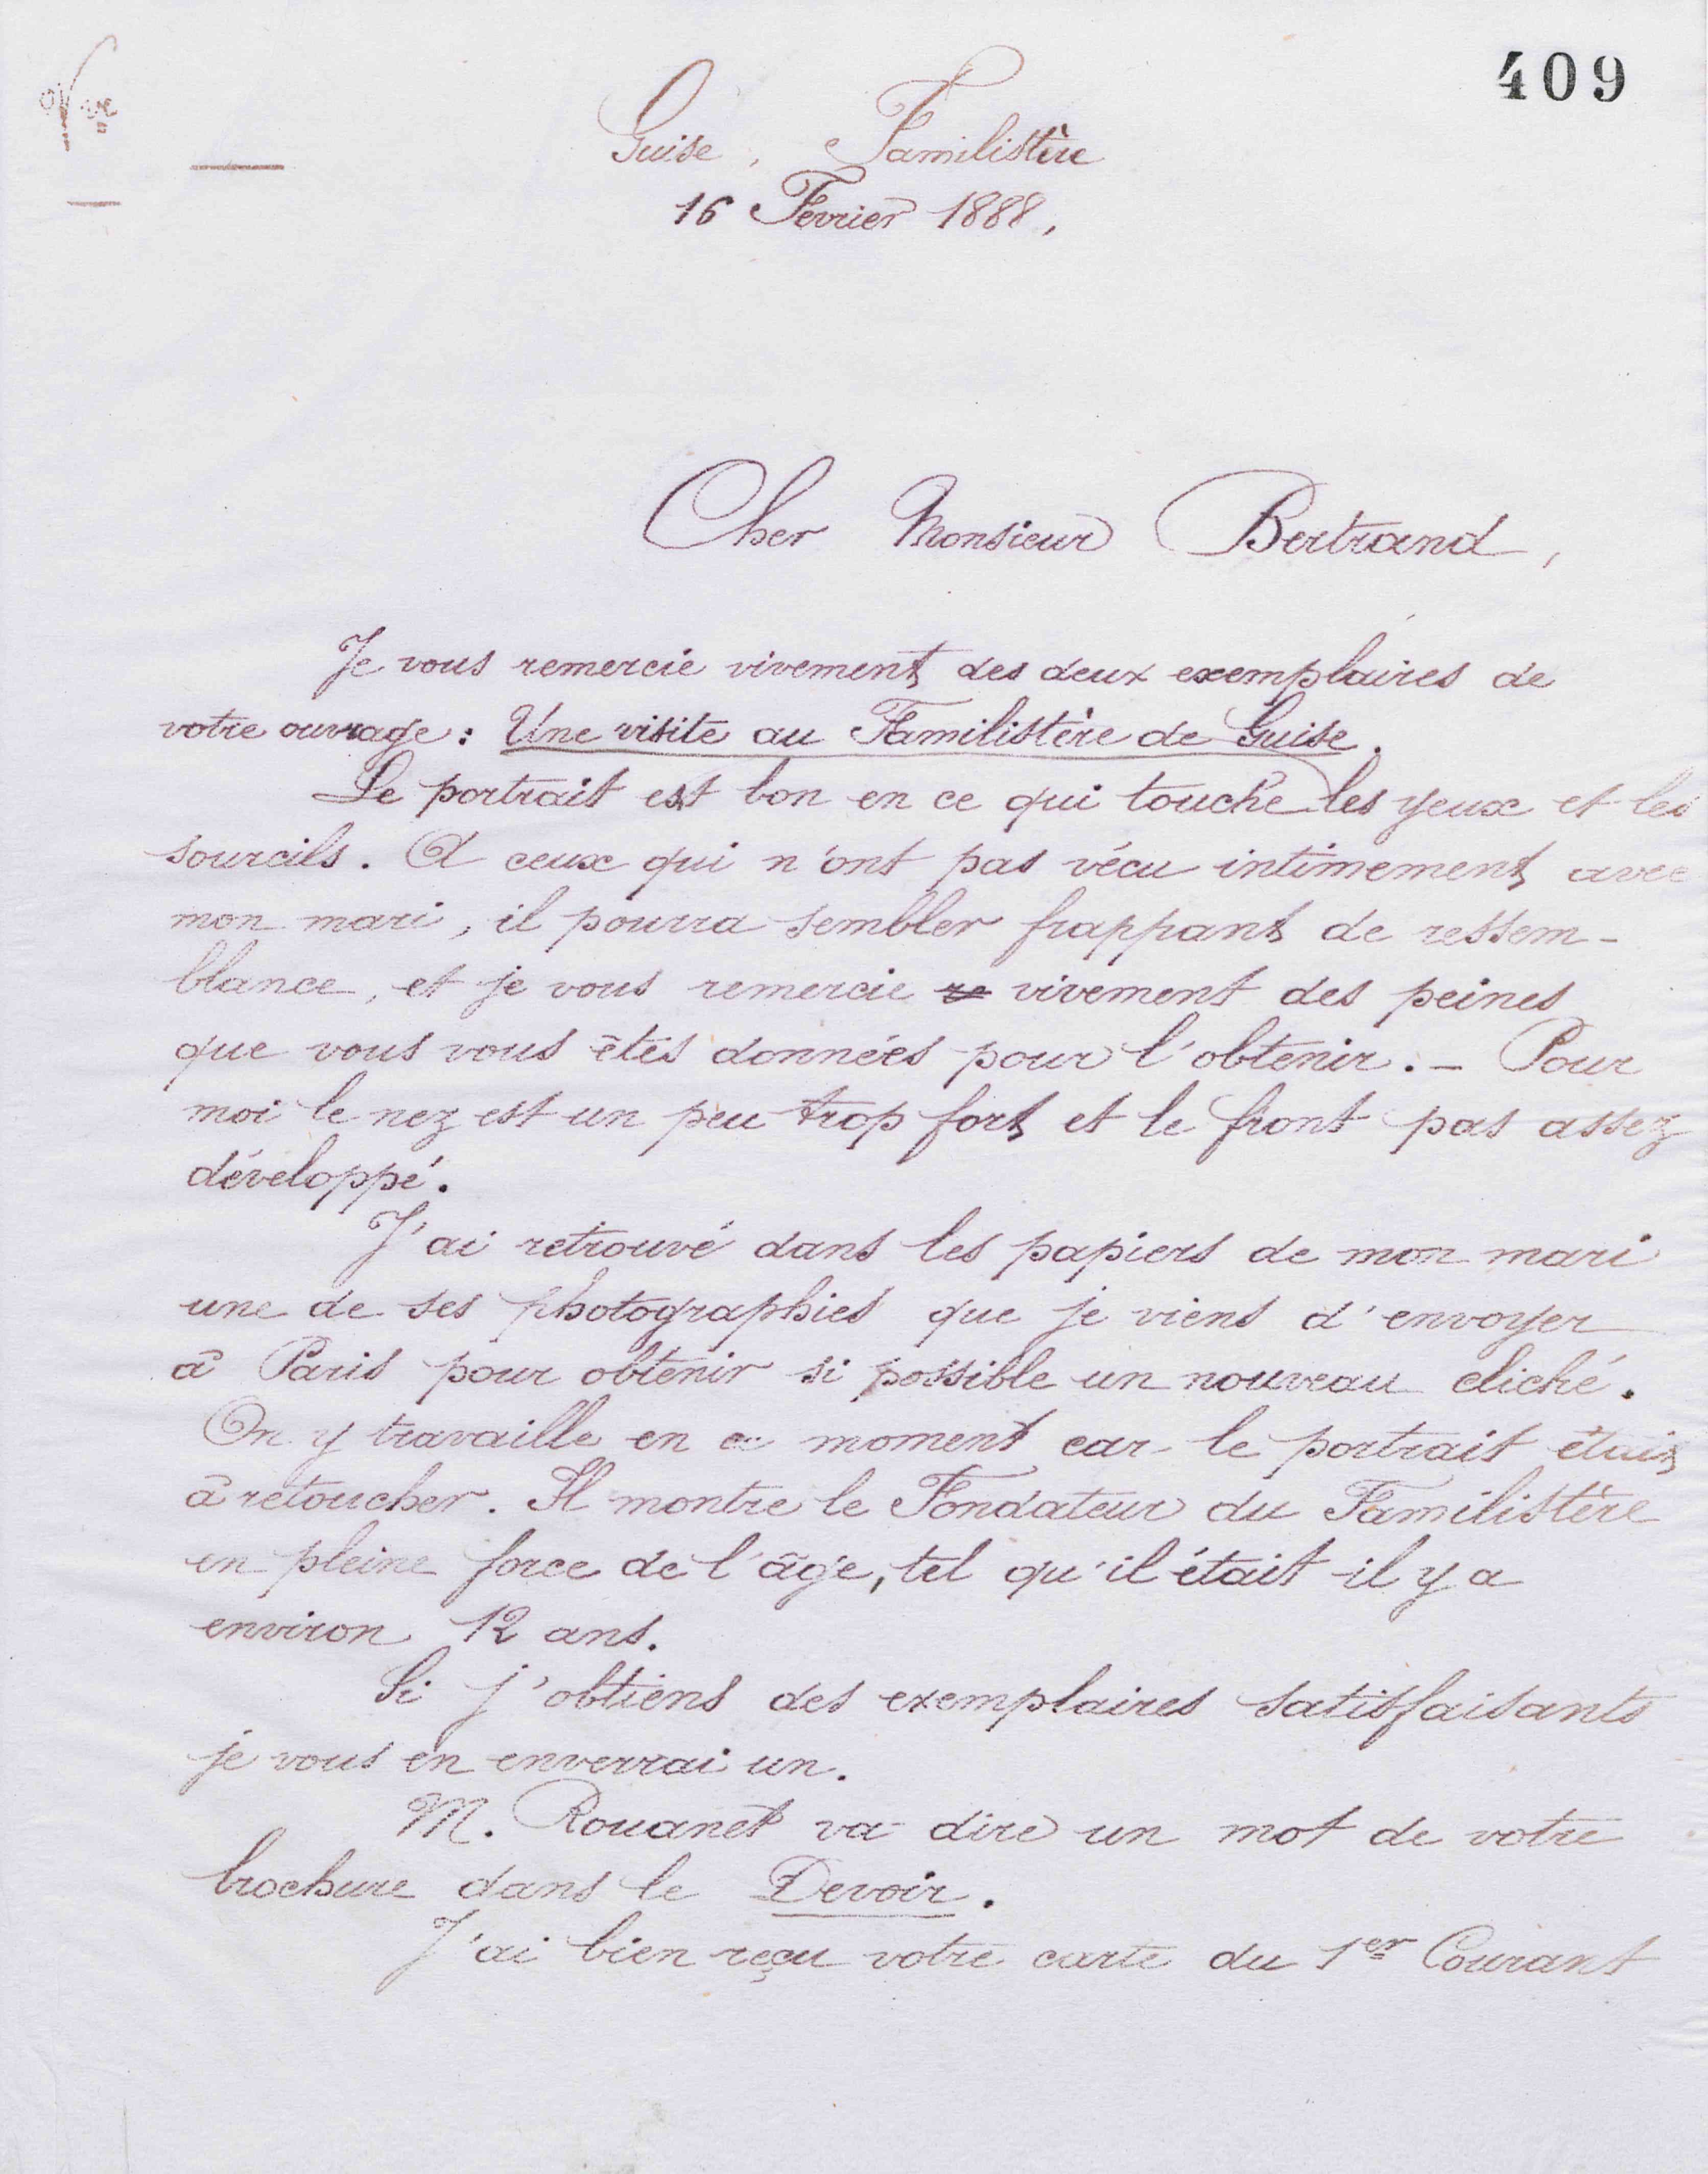 409
Guise, Familistère
16 Février 1888,
Cher Monsieur Bertrand,
Je vous remercie vivement des deux exemplaires de
votre ouvrage : Une visite au Familistère de Guise.
Le portrait est bon en ce qui touche les yeux et les
sourcils. A ceux qui n'ont pas vécu intimement avec
mon mari, il pourra sembler frappant de ressem-
blance, et je vous remercie re vivement des peines
que vous vous êtes données pour l'obtenir. – Pour
moi le nez est un peu trop fort et le front pas assez
développé.
J'ai retrouvé dans les papiers de mon mari
une de ses photographies que je viens d'envoyer
à Paris pour obtenir si possible un nouveau cliché.
On y travaille en ce moment car le portrait était
à retoucher. Il montre le Fondateur du Familistère
en pleine force de l'âge, tel qu'il était il y a
environ 12 ans.
Si j'obtiens des exemplaires satisfaisants
je vous en enverrai un.
M. Rouanet va dire un mot de votre
brochure dans le Devoir.
J'ai bien reçu votre carte du 1er Courant